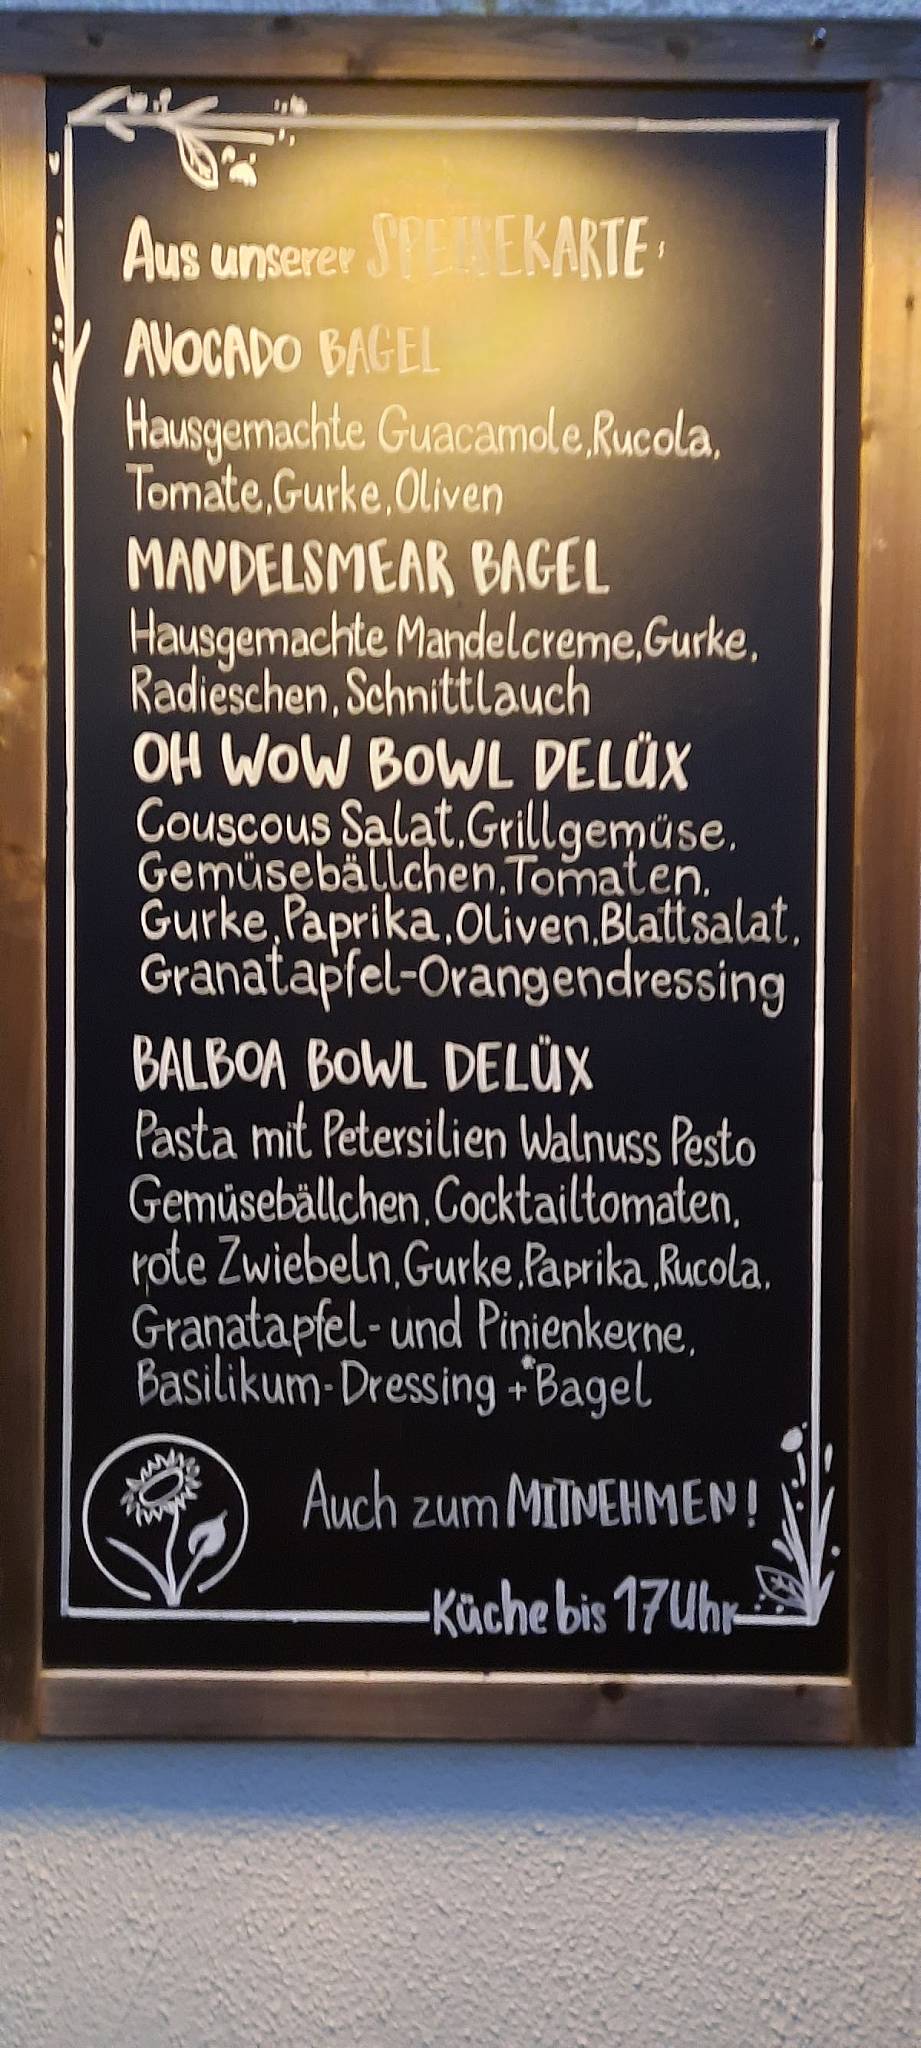 Aus unserer SPEISEKARTE:
AVOCADO BAGEL
Hausgemachte Guacamole, Rucola,
Tomate, Gurke, Oliven
MANDELSMEAR BAGEL
Hausgemachte Mandelcreme, Gurke,
Radieschen, Schnittlauch
OH WOW BOWL DELÜX
Couscous Salat, Grillgemüse,
Gemüsebällchen, Tomaten,
Gurke, Paprika, Oliven, Blattsalat,
Granatapfel-Orangendressing
BALBOA BOWL DELÜX
Pasta mit Petersilien Walnuss Pesto
Gemüsebällchen, Cocktailtomaten,
rote Zwiebeln, Gurke, Paprika, Rucola,
Granatapfel- und Pinienkerne,
Basilikum-Dressing + *Bagel
Auch zum MITNEHMEN!
Küche bis 17 Uhr